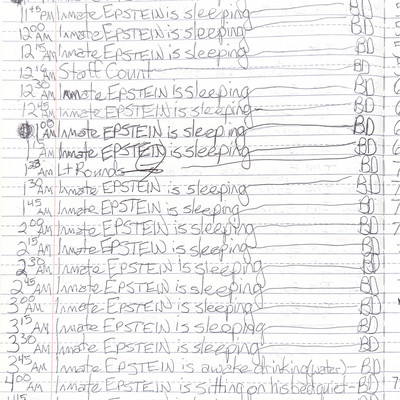 11:45 PM Inmate EPSTEIN is sleeping BD
12:00 AM Inmate EPSTEIN is sleeping BD
12:15 AM Inmate EPSTEIN is sleeping BD
12:16 AM Staff Count
12:30 AM Inmate EPSTEIN is sleeping BD
12:45 AM Inmate EPSTEIN is sleeping BD
1:00 AM Inmate EPSTEIN is sleeping BD
1:15 AM Inmate EPSTEIN is sleeping BD
AM Lt Rounds
1:30 AM Inmate EPSTEIN is sleeping BD
1:45 AM Inmate EPSTEIN is sleeping BD
2:00 AM Inmate EPSTEIN is sleeping BD
2:15 AM Inmate EPSTEIN is sleeping BD
2:30 AM Inmate EPSTEIN is sleeping BD
2:45 AM Inmate EPSTEIN is sleeping BD
3:00 AM Inmate EPSTEIN is sleeping BD
3:15 AM Inmate EPSTEIN is sleeping BD
3:30 AM Inmate EPSTEIN is sleeping BD
3:45 AM Inmate EPSTEIN is awake drinking (water) BD
4:00 AM Inmate EPSTEIN is sitting on his bed quiet BD